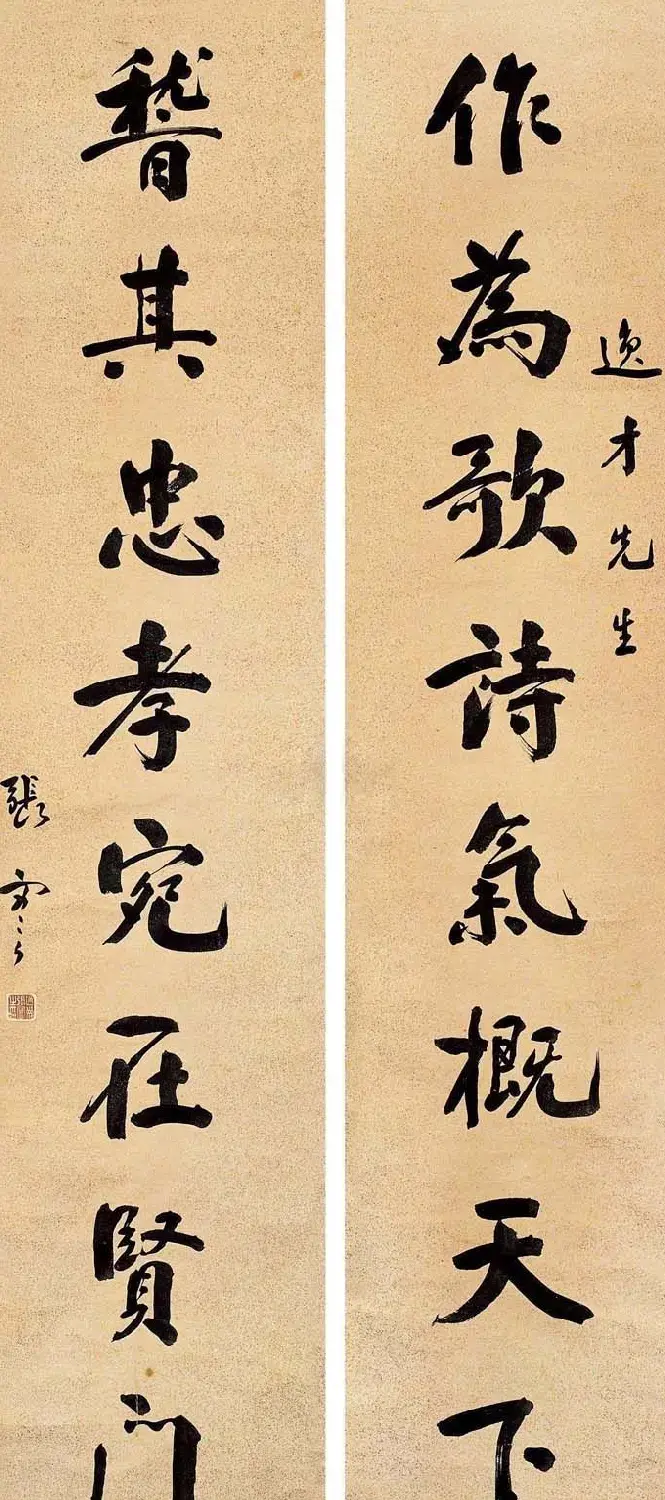 逸才先生
作為歌詩氣概天下
稽其忠孝宛在賢門
張謇